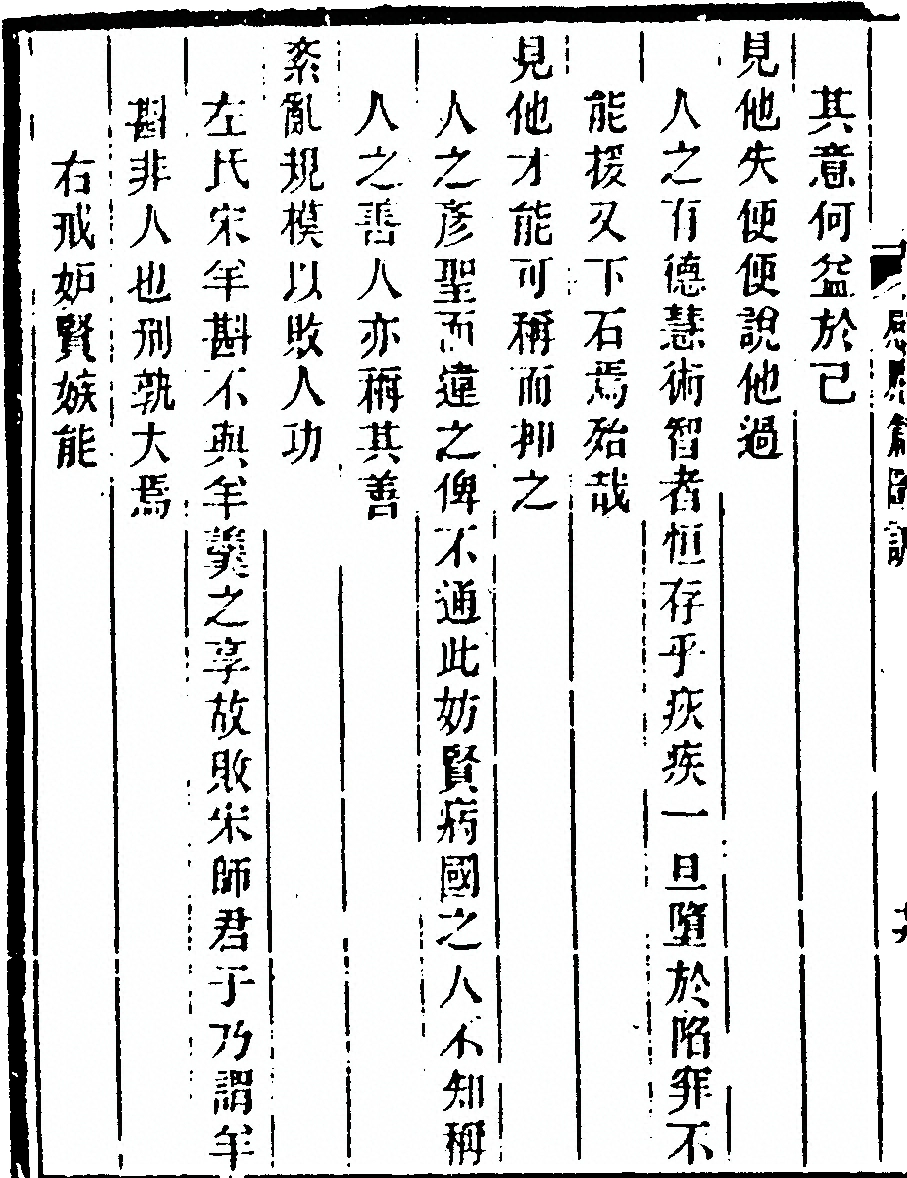 其意何益於己
見他失便便說他過
人之有德慧術智者恒存乎疢疾一旦墮於陷穽不
能援又下石焉殆哉
見他才能可稱而抑之
人之彥聖而違之俾不通此妨賢病國之人不知稱
人之善人亦稱其善
紊亂規模以敗人功
左氏宋羊斟不與羊羹之享故敗宋師君子乃謂羊
斟非人也刑孰大焉
右戒妒賢嫉能